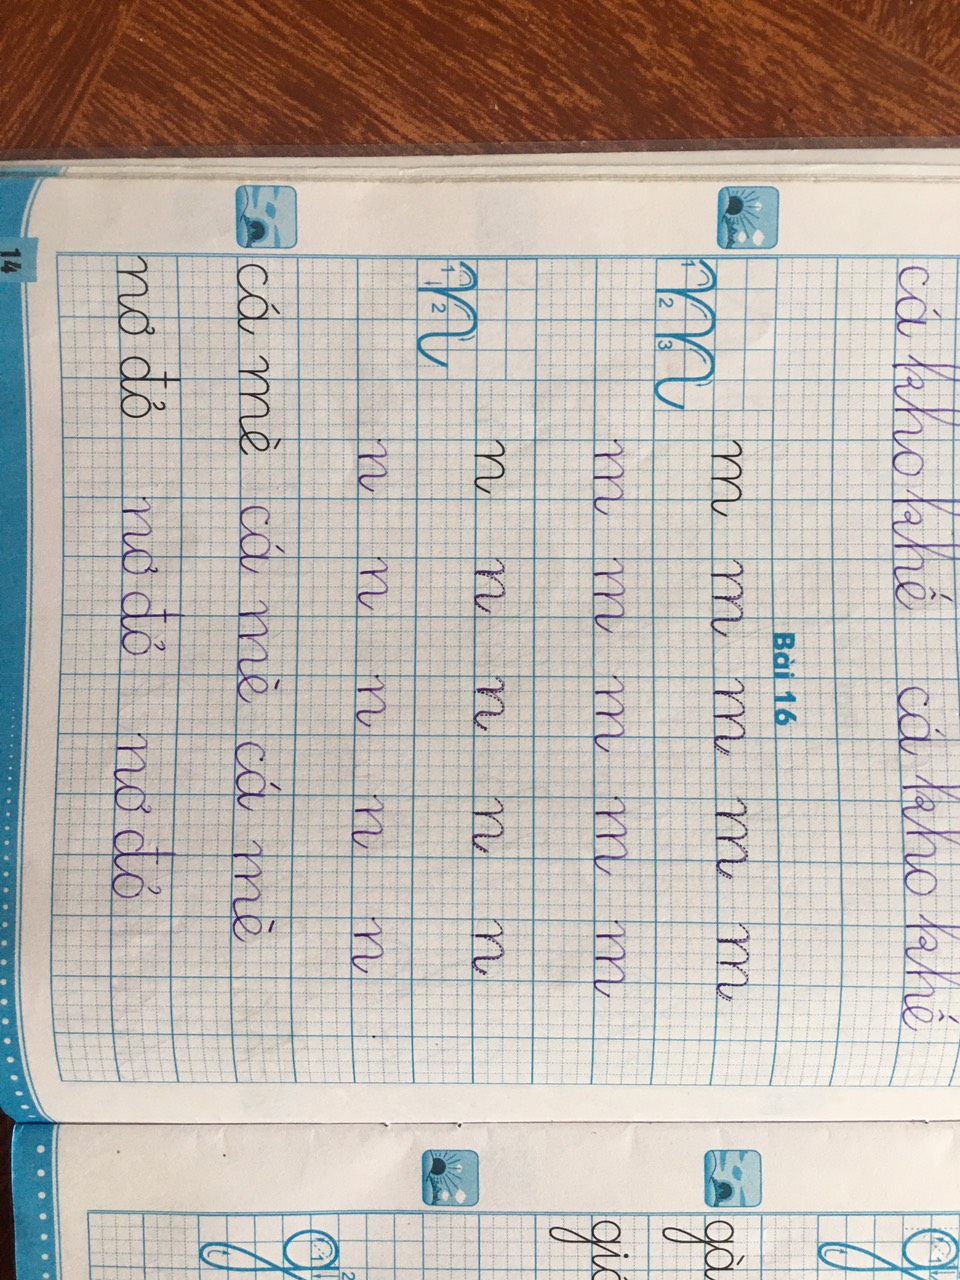 cá kho khế cá kho khế
Bài 16
1 2 3
m m m m m
m m m m m
1 2
n n n n n
n n n n n
cá mè cá mè cá mè
nơ đỏ nơ đỏ nơ đỏ
14
g
gà
gió
g
2